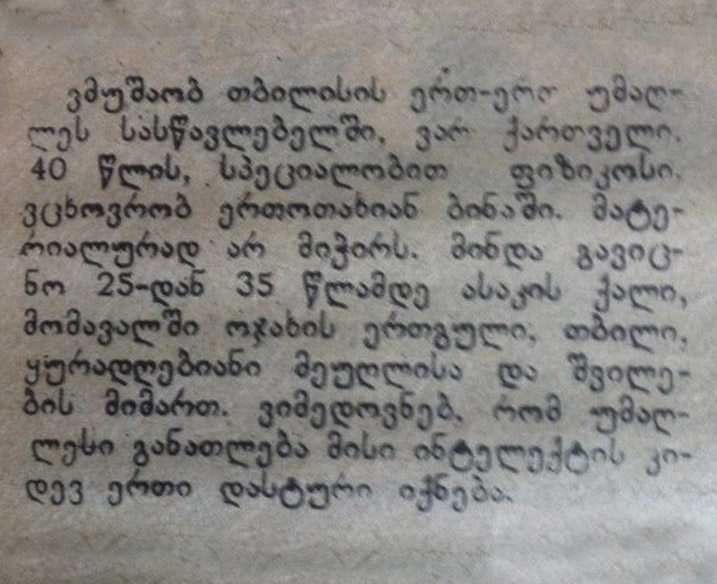 ვმუშაობ თბილისის ერთ-ერთ უმაღ-
ლეს სასწავლებელში, ვარ ქართველი.
40 წლის, სპეციალობით ფიზიკოსი.
ვცხოვრობ ერთოთახიან ბინაში. მატე-
რიალურად არ მიჭირს. მინდა გავიც-
ნო 25-დან 35 წლამდე ასაკის ქალი,
მომავალში ოჯახის ერთგული, თბილი,
ყურადღებიანი მეუღლისა და შვილე-
ბის მიმართ. ვიმედოვნებ, რომ უმაღ-
ლესი განათლება მისი ინტელექტის კი-
დევ ერთი დასტური იქნება.